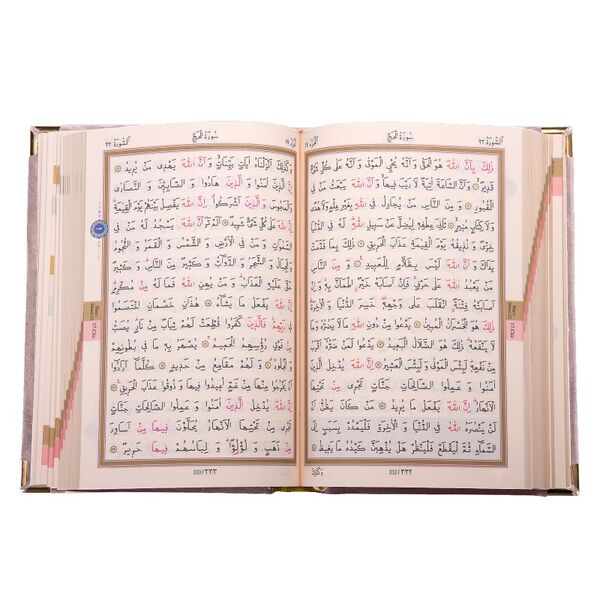 اَلسُّورَةُ ٢٢ سُورَةُ الْحَجِّ اَلْجُزْءُ ١٧
ذٰلِكَ بِاَنَّ اللّٰهَ هُوَ الْحَقُّ وَاَنَّهُ يُحْيِ الْمَوْتٰى وَاَنَّهُ عَلٰى كُلِّ شَيْءٍ
قَدِيرٌ وَاَنَّ السَّاعَةَ اٰتِيَةٌ لَا رَيْبَ فِيهَا وَاَنَّ اللّٰهَ يَبْعَثُ مَنْ فِي
الْقُبُورِ وَمِنَ النَّاسِ مَنْ يُجَادِلُ فِي اللّٰهِ بِغَيْرِ عِلْمٍ وَلَا هُدًى
وَلَا كِتَابٍ مُنِيرٍ ثَانِيَ عِطْفِهِ لِيُضِلَّ عَنْ سَبِيلِ اللّٰهِ لَهُ فِي الدُّنْيَا
خِزْيٌ وَنُذِيقُهُ يَوْمَ الْقِيٰمَةِ عَذَابَ الْحَرِيقِ ذٰلِكَ بِمَا قَدَّمَتْ
يَدَاكَ وَاَنَّ اللّٰهَ لَيْسَ بِظَلَّامٍ لِلْعَبِيدِ وَمِنَ النَّاسِ
مَنْ يَعْبُدُ اللّٰهَ عَلٰى حَرْفٍ فَاِنْ اَصَابَهُ خَيْرٌ اطْمَاَنَّ بِهِ وَاِنْ
اَصَابَتْهُ فِتْنَةٌ انْقَلَبَ عَلٰى وَجْهِهِ خَسِرَ الدُّنْيَا وَالْاٰخِرَةَ
ذٰلِكَ هُوَ الْخُسْرَانُ الْمُبِينُ يَدْعُوا مِنْ دُونِ اللّٰهِ مَا لَا يَضُرُّهُ
وَمَا لَا يَنْفَعُهُ ذٰلِكَ هُوَ الضَّلَالُ الْبَعِيدُ يَدْعُوا لَمَنْ ضَرُّهُ اَقْرَبُ
مِنْ نَفْعِهِ لَبِئْسَ الْمَوْلٰى وَلَبِئْسَ الْعَشِيرُ اِنَّ اللّٰهَ يُدْخِلُ الَّذِينَ
اٰمَنُوا وَعَمِلُوا الصَّالِحَاتِ جَنَّاتٍ تَجْرِي مِنْ تَحْتِهَا
الْاَنْهَارُ اِنَّ اللّٰهَ يَفْعَلُ مَا يُرِيدُ مَنْ كَانَ يَظُنُّ اَنْ لَنْ
يَنْصُرَهُ اللّٰهُ فِي الدُّنْيَا وَالْاٰخِرَةِ فَلْيَمْدُدْ بِسَبَبٍ اِلَى
السَّمَاءِ ثُمَّ لْيَقْطَعْ فَلْيَنْظُرْ هَلْ يُذْهِبَنَّ كَيْدُهُ مَا يَغِيظُ
332/٣٣٢ وَكَذٰلِكَ
اَلسُّورَةُ ٢٢ سُورَةُ الْحَجِّ
وَكَذٰلِكَ اَنْزَلْنَاهُ اٰيَاتٍ بَيِّنَاتٍ وَاَنَّ اللّٰهَ يَهْدِي مَنْ يُرِيدُ
اِنَّ الَّذِينَ اٰمَنُوا وَالَّذِينَ هَادُوا وَالصَّابِئِينَ وَالنَّصَارٰى
وَالْمَجُوسَ وَالَّذِينَ اَشْرَكُوا اِنَّ اللّٰهَ يَفْصِلُ بَيْنَهُمْ يَوْمَ الْقِيٰمَةِ
اِنَّ اللّٰهَ عَلٰى كُلِّ شَيْءٍ شَهِيدٌ اَلَمْ تَرَ اَنَّ اللّٰهَ يَسْجُدُ لَهُ مَنْ فِي
السَّمٰوَاتِ وَمَنْ فِي الْاَرْضِ وَالشَّمْسُ وَالْقَمَرُ وَالنُّجُومُ
وَالْجِبَالُ وَالشَّجَرُ وَالدَّوَابُّ وَكَثِيرٌ مِنَ النَّاسِ وَكَثِيرٌ
حَقَّ عَلَيْهِ الْعَذَابُ وَمَنْ يُهِنِ اللّٰهُ فَمَا لَهُ مِنْ مُكْرِمٍ
اِنَّ اللّٰهَ يَفْعَلُ مَا يَشَاءُ هٰذَانِ خَصْمَانِ اخْتَصَمُوا
فِي رَبِّهِمْ فَالَّذِينَ كَفَرُوا قُطِّعَتْ لَهُمْ ثِيَابٌ مِنْ نَارٍ يُصَبُّ
مِنْ فَوْقِ رُؤُسِهِمُ الْحَمِيمُ يُصْهَرُ بِهِ مَا فِي بُطُونِهِمْ
وَالْجُلُودُ وَلَهُمْ مَقَامِعُ مِنْ حَدِيدٍ كُلَّمَا اَرَادُوا
اَنْ يَخْرُجُوا مِنْهَا مِنْ غَمٍّ اُعِيدُوا فِيهَا وَذُوقُوا عَذَابَ الْحَرِيقِ
اِنَّ اللّٰهَ يُدْخِلُ الَّذِينَ اٰمَنُوا وَعَمِلُوا الصَّالِحَاتِ جَنَّاتٍ
تَجْرِي مِنْ تَحْتِهَا الْاَنْهَارُ يُحَلَّوْنَ فِيهَا مِنْ اَسَاوِرَ
مِنْ ذَهَبٍ وَلُؤْلُؤًا وَلِبَاسُهُمْ فِيهَا حَرِيرٌ
333/٣٣٣